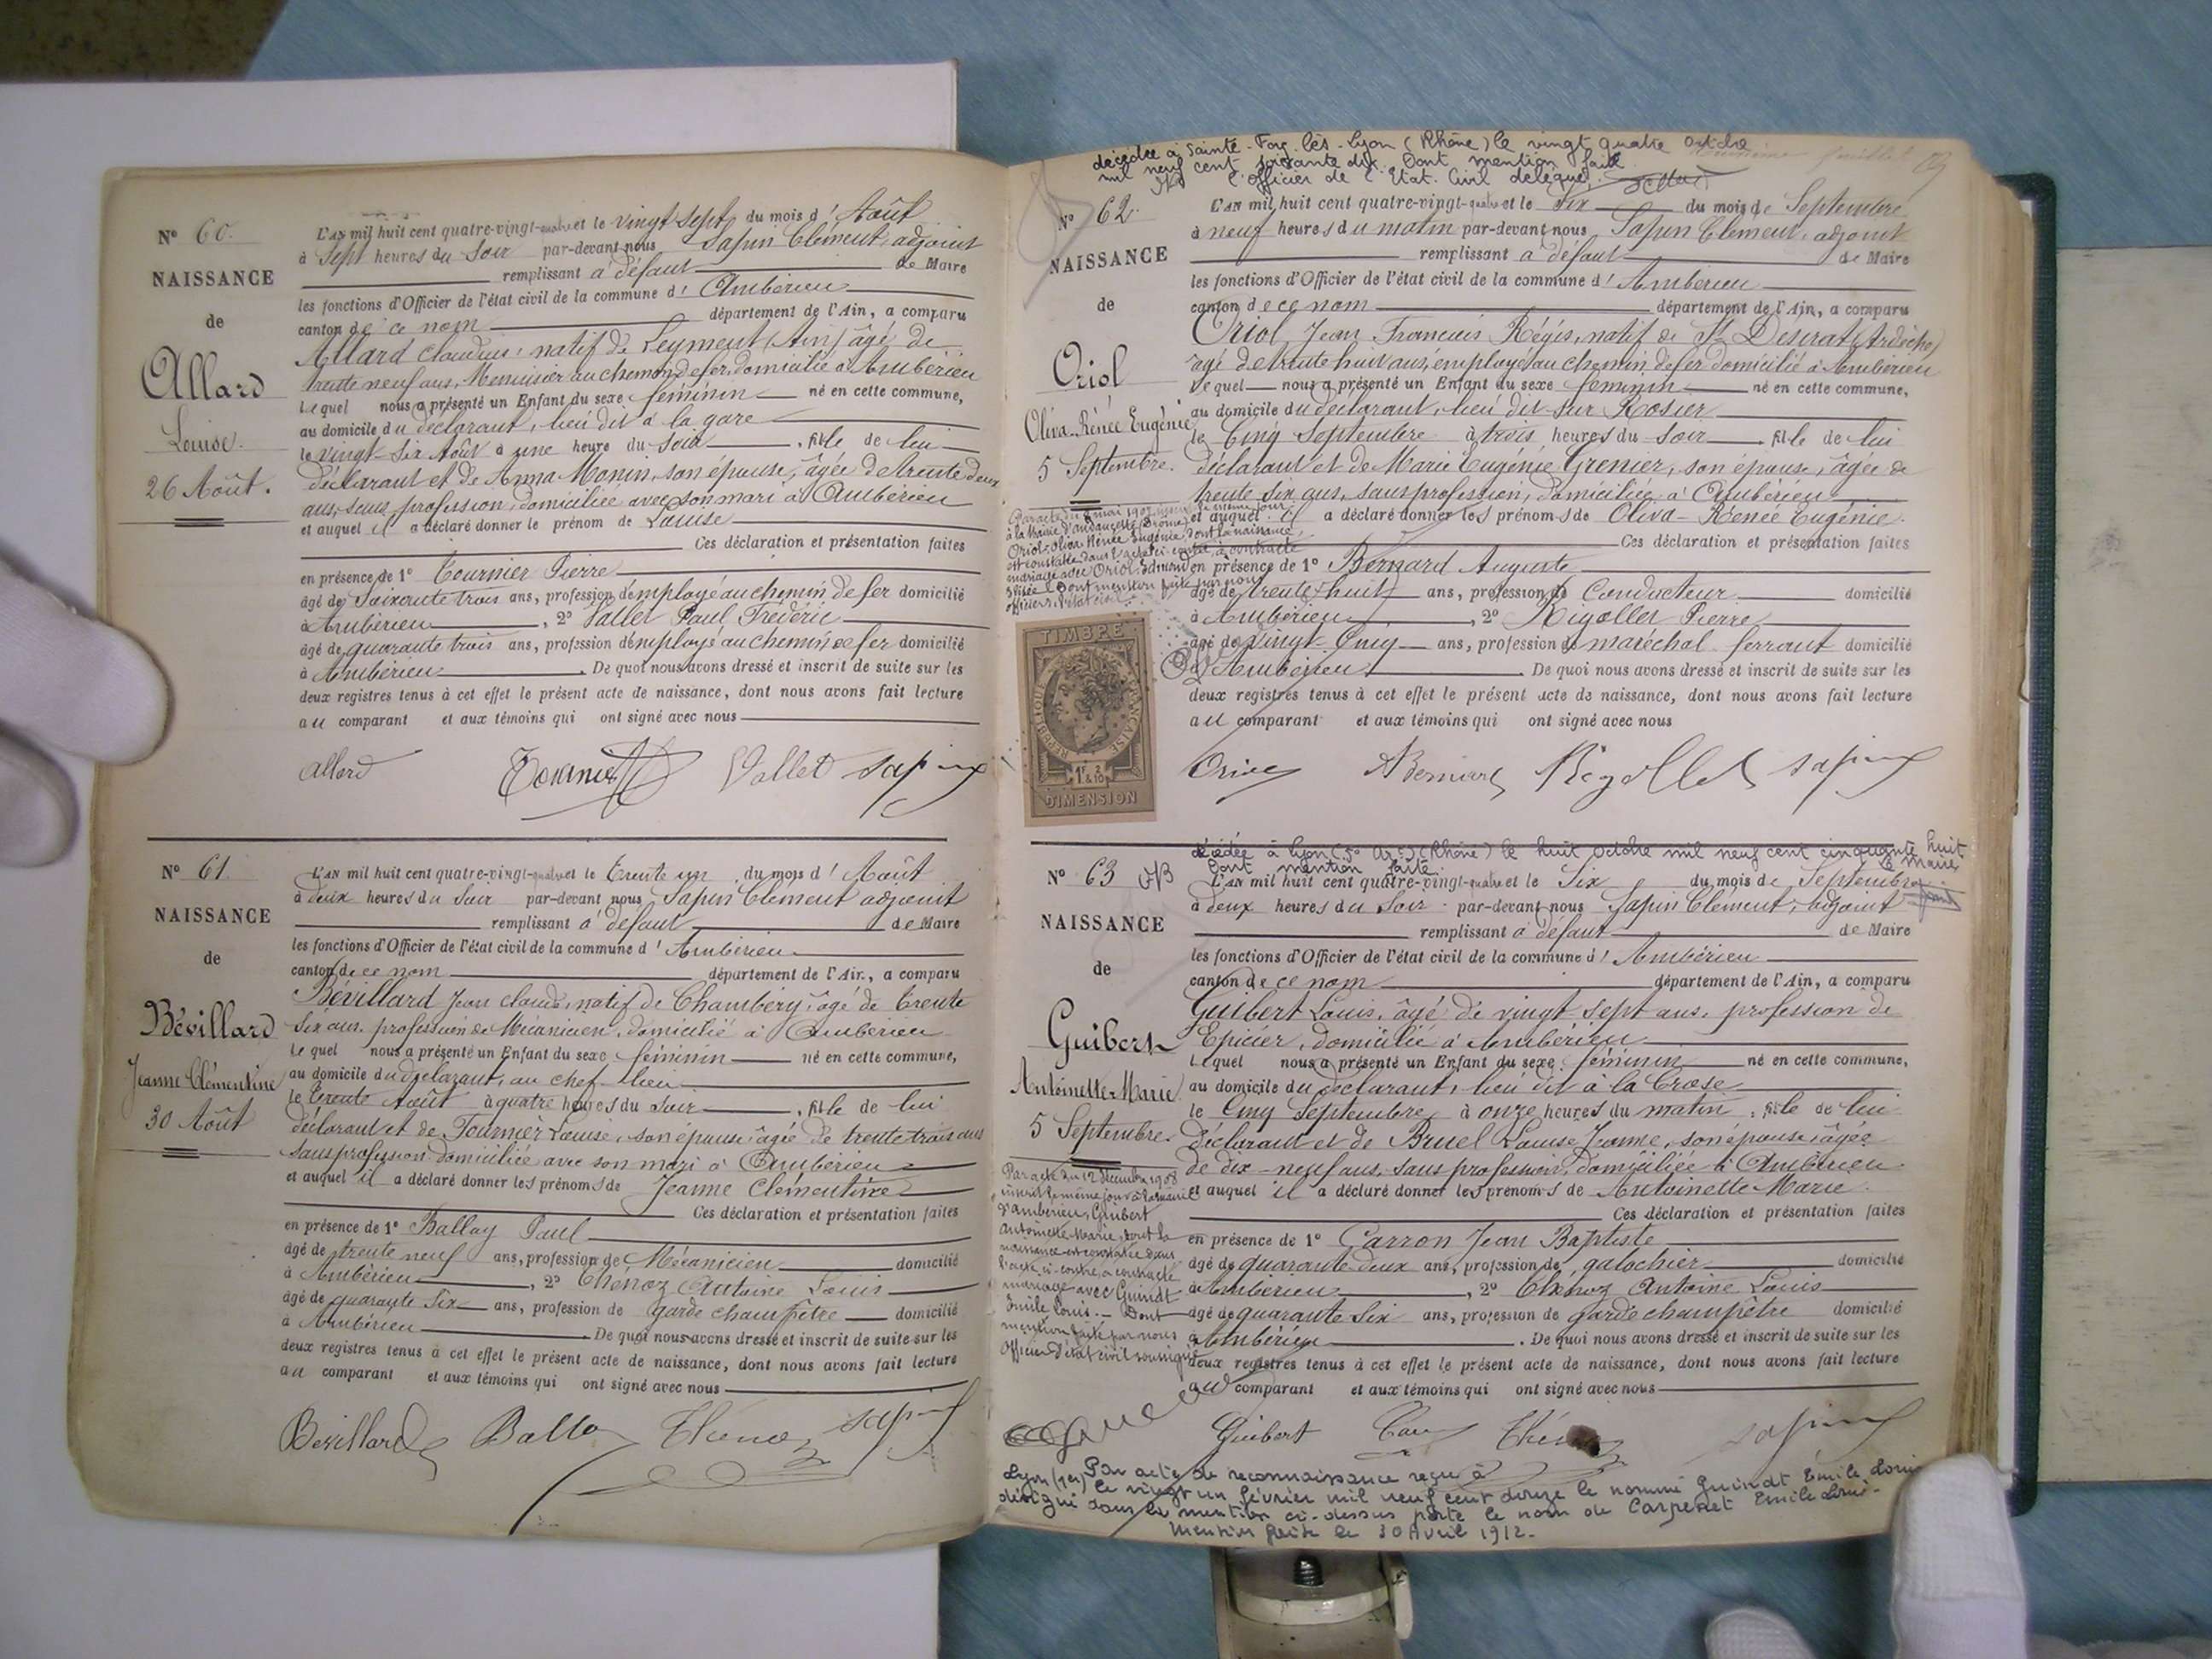 N° 60.
NAISSANCE
de
Allard
Louise.
26 Août.
L'AN mil huit cent quatre-vingt-quatre et le vingt sept du mois d' Août
à Sept heures du Soir par-devant nous Sapin Clément, adjoint
remplissant à défaut de Maire
les fonctions d'Officier de l'état civil de la commune d' Ambérieu
canton de ce nom département de l'Ain, a comparu
Allard Claudius, natif de Leyment (Ain) âgé de
trente neuf ans, Menuisier au chemin de fer, domicilié à Ambérieu
Lequel nous a présenté un Enfant du sexe féminin né en cette commune,
au domicile du déclarant, lieu dit à la gare
le vingt-six Août à une heure du soir, fille de lui
déclarant et de Anna Monin, son épouse, âgée de trente deux
ans, sans profession, domiciliée avec son mari à Ambérieu
et auquel il a déclaré donner le prénom de Louise
Ces déclaration et présentation faites
en présence de 1° Tournier Pierre
âgé de Soixante trois ans, profession d'employé au chemin de fer domicilié
à Ambérieu, 2° Vallet Paul Frédéric
âgé de quarante trois ans, profession d'employé au chemin de fer domicilié
à Ambérieu. De quoi nous avons dressé et inscrit de suite sur les
deux registres tenus à cet effet le présent acte de naissance, dont nous avons fait lecture
au comparant et aux témoins qui ont signé avec nous
Allard Tournier Vallet Sapin
N° 61.
NAISSANCE
de
Bévillard
Jeanne Clémentine
30 Août
L'AN mil huit cent quatre-vingt-quatre et le Trente un du mois d' Août
à deux heures du Soir par-devant nous Sapin Clément adjoint
remplissant à défaut de Maire
les fonctions d'Officier de l'état civil de la commune d' Ambérieu
canton de ce nom département de l'Ain, a comparu
Bévillard Jean Claude, natif de Chambéry, âgé de trente
six ans, profession de Mécanicien, domicilié à Ambérieu
Lequel nous a présenté un Enfant du sexe féminin né en cette commune,
au domicile du déclarant, au chef-lieu
le trente Août à quatre heures du soir, fille de lui
déclarant et de Tournier Louise, son épouse âgée de trente trois ans
sans profession domiciliée avec son mari à Ambérieu
et auquel il a déclaré donner les prénoms de Jeanne Clémentine
Ces déclaration et présentation faites
en présence de 1° Ballay Paul
âgé de trente neuf ans, profession de Mécanicien domicilié
à Ambérieu, 2° Thénoz Antoine Louis
âgé de quarante six ans, profession de garde champêtre domicilié
à Ambérieu. De quoi nous avons dressé et inscrit de suite sur les
deux registres tenus à cet effet le présent acte de naissance, dont nous avons fait lecture
au comparant et aux témoins qui ont signé avec nous
Bévillard Ballay Thénoz Sapin
décédée à Sainte-Foy-lès-Lyon (Rhône) le vingt quatre octobre
mil neuf cent soixante dix. Dont mention faite
l'officier de l'Etat-Civil délégué.
N° 62.
NAISSANCE
de
Oriol
Oliva Rénée Eugénie
5 Septembre.
à la Mairie d'Andancette (Drôme)
Oriol Oliva Rénée Eugénie, dont la naissance
est constatée dans l'acte ci-contre, a contracté
mariage avec Oriol Edmond
Dont mention faite par nous
officier d'état civil
TIMBRE
REPUBLIQUE FRANÇAISE
1F 2/10
DIMENSION
L'AN mil huit cent quatre-vingt-quatre et le Six du mois de Septembre
à neuf heures du matin par-devant nous Sapin Clément, adjoint
remplissant à défaut de Maire
les fonctions d'Officier de l'état civil de la commune d' Ambérieu
canton de ce nom département de l'Ain, a comparu
Oriol Jean François Régis, natif de St Desirat (Ardèche)
âgé de trente huit ans, employé au chemin de fer domicilié à Ambérieu
Lequel nous a présenté un Enfant du sexe féminin né en cette commune,
au domicile du déclarant, lieu dit sur Rosier
le Cinq Septembre à trois heures du soir fille de lui
déclarant et de Marie Eugénie Grenier, son épouse, âgée de
trente six ans, sans profession, domiciliée à Ambérieu
et auquel il a déclaré donner les prénoms de Oliva-Rénée Eugénie.
Ces déclaration et présentation faites
en présence de 1° Bernard Auguste
âgé de trente huit ans, profession de Conducteur domicilié
à Ambérieu, 2° Rigollet Pierre
âgé de vingt-cinq ans, profession de maréchal ferrant domicilié
à Ambérieu. De quoi nous avons dressé et inscrit de suite sur les
deux registres tenus à cet effet le présent acte de naissance, dont nous avons fait lecture
au comparant et aux témoins qui ont signé avec nous
Oriol ABernard Rigollet Sapin
décédée à Lyon (5e Arr.) (Rhône) le huit octobre mil neuf cent cinquante huit
Dont mention faite. Le Maire
N° 63
NAISSANCE
de
Guibert
Antoinette-Marie
5 Septembre.
Par acte du 12 décembre 1908
inscrit le même jour à la mairie
d'Ambérieu, Guibert
Antoinette Marie, dont la
naissance est constatée dans
l'acte ci-contre, a contracté
mariage avec Guindt
Emile Louis. — Dont
mention faite par nous
Officier d'état civil soussigné
L'AN mil huit cent quatre-vingt-quatre et le Six du mois de Septembre
à deux heures du Soir par-devant nous Sapin Clément, adjoint
remplissant à défaut de Maire
les fonctions d'Officier de l'état civil de la commune d' Ambérieu
canton de ce nom département de l'Ain, a comparu
Guibert Louis, âgé de vingt-sept ans, profession de
Epicier, domicilié à Ambérieu
Lequel nous a présenté un Enfant du sexe féminin né en cette commune,
au domicile du déclarant, lieu dit à la Crose
le Cinq Septembre à onze heures du matin, fille de lui
déclarant et de Bruel Louise Jeanne, son épouse, âgée
de dix-neuf ans, sans profession, domiciliée à Ambérieu
et auquel il a déclaré donner les prénoms de Antoinette Marie.
Ces déclaration et présentation faites
en présence de 1° Garron Jean Baptiste
âgé de quarante deux ans, profession de galochier domicilié
à Ambérieu, 2° Thénoz Antoine Louis
âgé de quarante six ans, profession de garde champêtre domicilié
à Ambérieu. De quoi nous avons dressé et inscrit de suite sur les
deux registres tenus à cet effet le présent acte de naissance, dont nous avons fait lecture
au comparant et aux témoins qui ont signé avec nous
Guibert Thénoz Sapin
Par acte de reconnaissance reçu à
Lyon (1er) le vingt un février mil neuf cent douze le nommé Guindt Emile Louis
désigné dans la mention ci-dessus porte le nom de Carperet Emile Louis.
Mention faite le 30 Avril 1912.